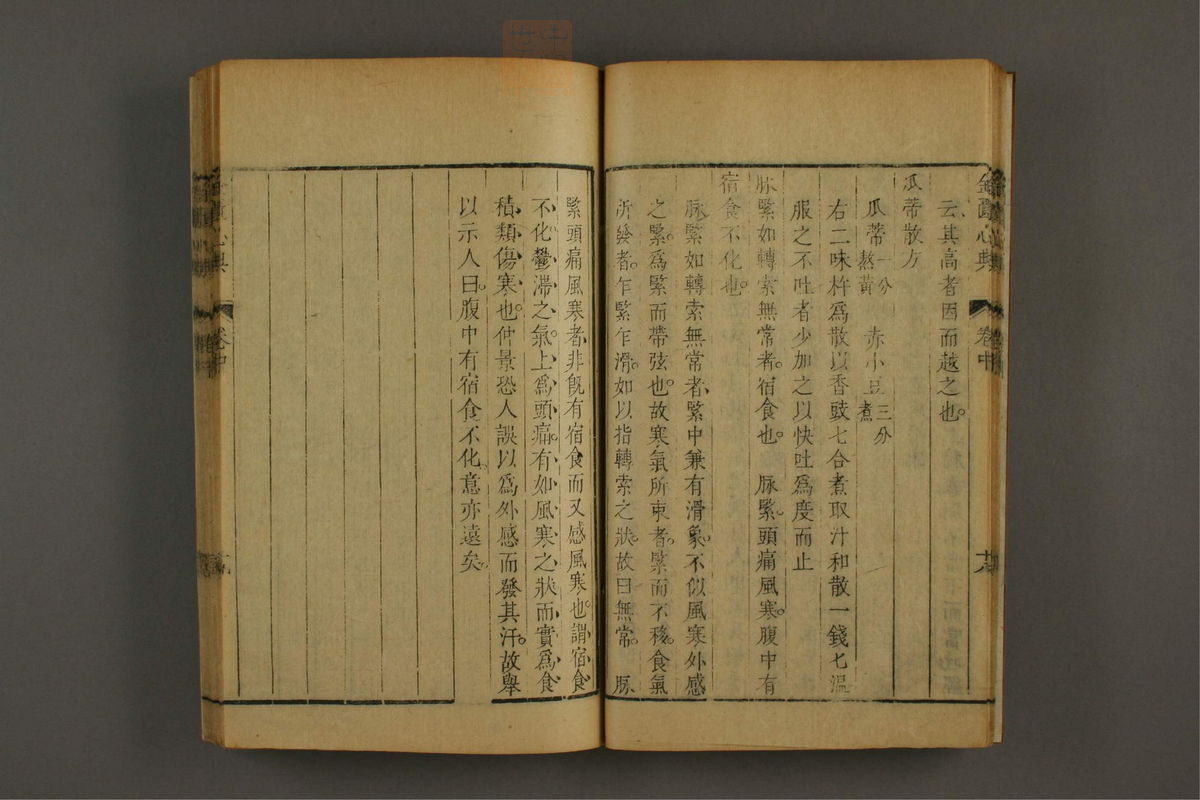 金匱心典 卷中 十八
云其高者因而越之也
瓜蒂散方
瓜蒂一分熬黃 赤小豆三分煮
右二味杵為散以香豉七合煮取汁和散一錢七溫
服之不吐者少加之以快吐為度而止
脉緊如轉索無常者宿食也 脉緊頭痛風寒腹中有
宿食不化也
脉緊如轉索無常者緊中兼有滑象不似風寒外感
之緊為緊而帶弦也故寒氣所束者緊而不移食氣
所發者乍緊乍滑如以指轉索之狀故曰無常 脉
緊頭痛風寒者非旣有宿食而又感風寒也謂宿食
不化鬱滯之氣上為頭痛有如風寒之狀而實為食
積類傷寒也仲景恐人誤以為外感而發其汗故舉
以示人曰腹中有宿食不化意亦遠矣
心典 卷中